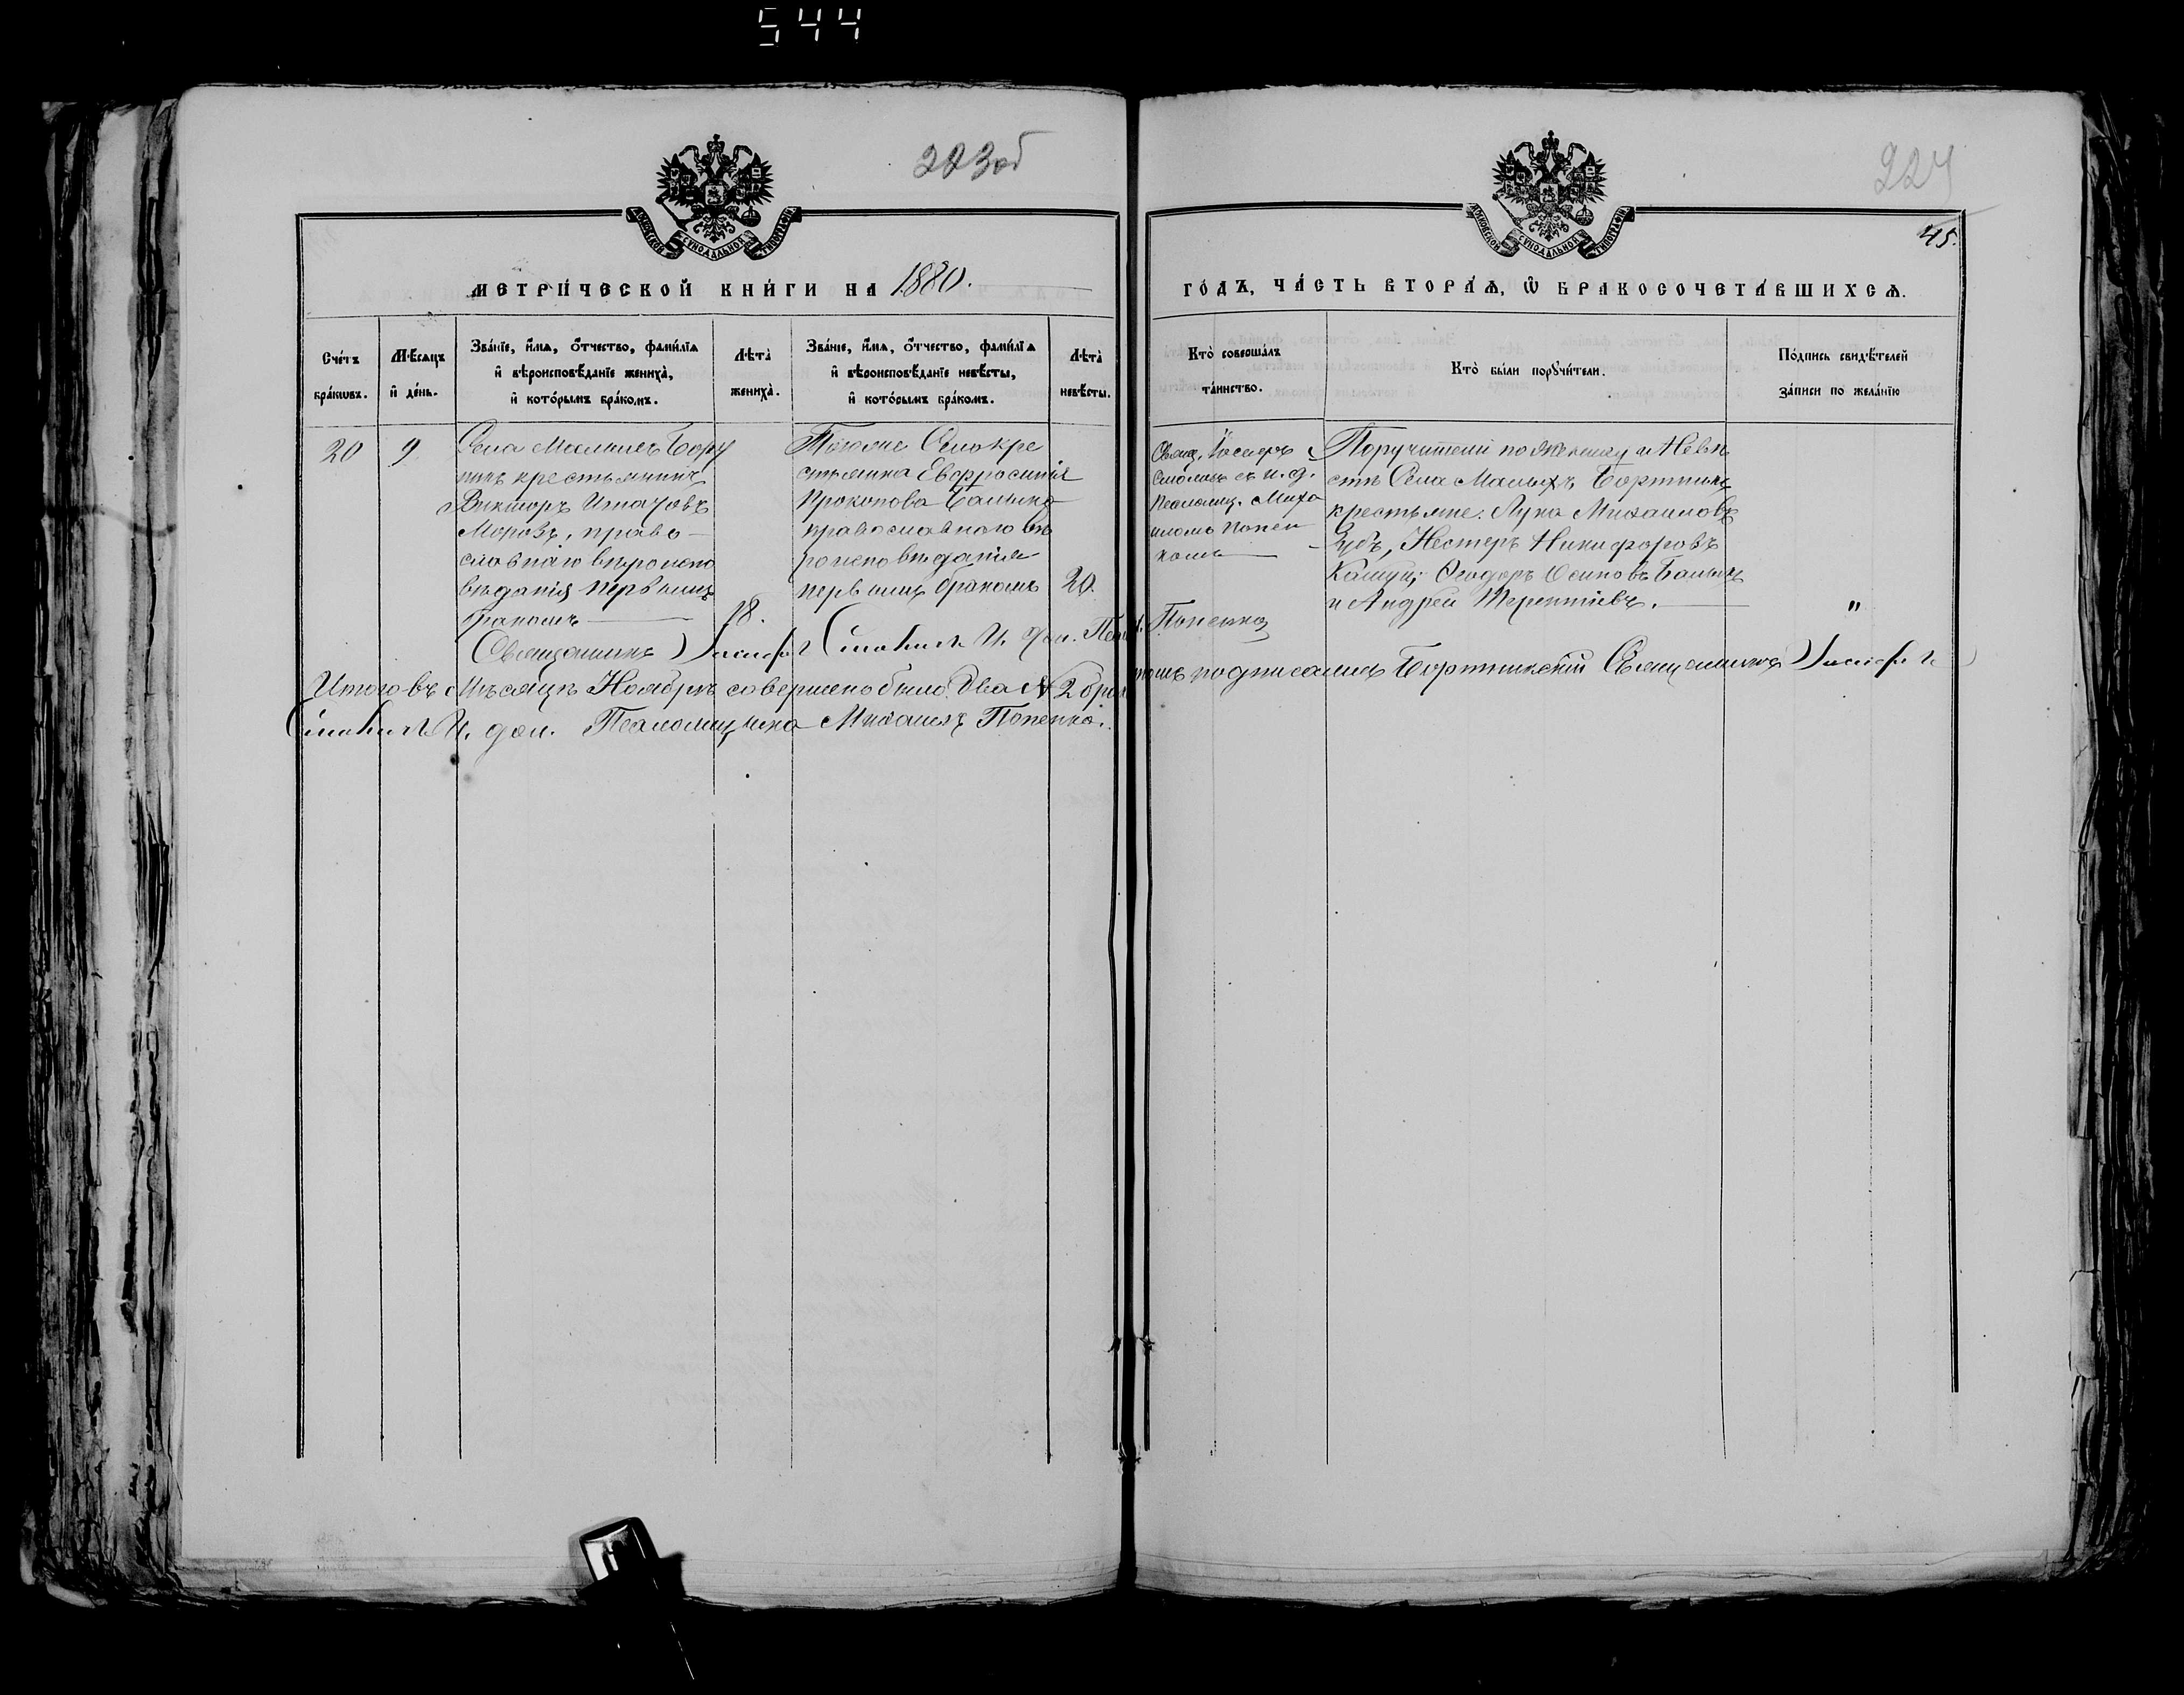 544
223об
224
45.
МОСКОВСКОЙ СѴНОДАЛЬНОЙ ТИПОГРАФІИ
МОСКОВСКОЙ СѴНОДАЛЬНОЙ ТИПОГРАФІИ
МЕТРИ́ЧЕСКОЙ КНИ́ГИ НА 1880.
ГО́ДЪ, ЧА́СТЬ ВТОРА́Ѧ, Ѡ҆ БРАКОСОЧЕТА́ВШИХСѦ.
Сче́тъ бра́кѡвъ.
Мѣ́сѧцъ и҆ де́нь.
Зва́нїе, и҆́мѧ, о҆́тчество, фами́лїѧ
и҆ вѣроисповѣ́данїе жениха̀,
и҆ кото́рымъ бра́комъ.
Лѣта̀ жениха̀.
Зва́нїе, и҆́мѧ, о҆́тчество, фами́лїѧ
и҆ вѣроисповѣ́данїе невѣ́сты,
и҆ кото́рымъ бра́комъ.
Лѣта̀ невѣ́сты.
Кто̀ соверша́лъ
та́инство.
Кто̀ бы́ли порꙋчи́тели.
По́дпись свидѣ́телей
за́писи по жела́нїю
20
9
Села Малыхъ Борт
никъ крестьянинъ
Викторъ Игнатовъ
Морозъ, право-
славнаго вѣроиспо
вѣданія первымъ
бракомъ
18.
Тогоже Села кре
стьянка Евфросинія
Прокопова Балыка
православного вѣ
роисповѣданія
первымъ бракомъ
20.
Свящ. Іосифъ
съ и. д.
Псаломщ. Миха
иломъ Попен
комъ
Поручители по Жениху и Невѣ
стѣ Села Малыхъ Бортникъ
крестьяне: Лука Михаиловъ
Зубъ, Несторъ Никифоровъ
Ѳеодоръ Осиповъ Балыка
и Андрей Терентіевъ.
"
Священникъ Іосифъ И. дол. Псал. Попенко
Итого въ Мѣсяцѣ Ноябрѣ совершено было Два № 2 брака
въ томъ подписались Бортникскій Священникъ Іосифъ
И. дол. Псаломщика Михаилъ Попенко.